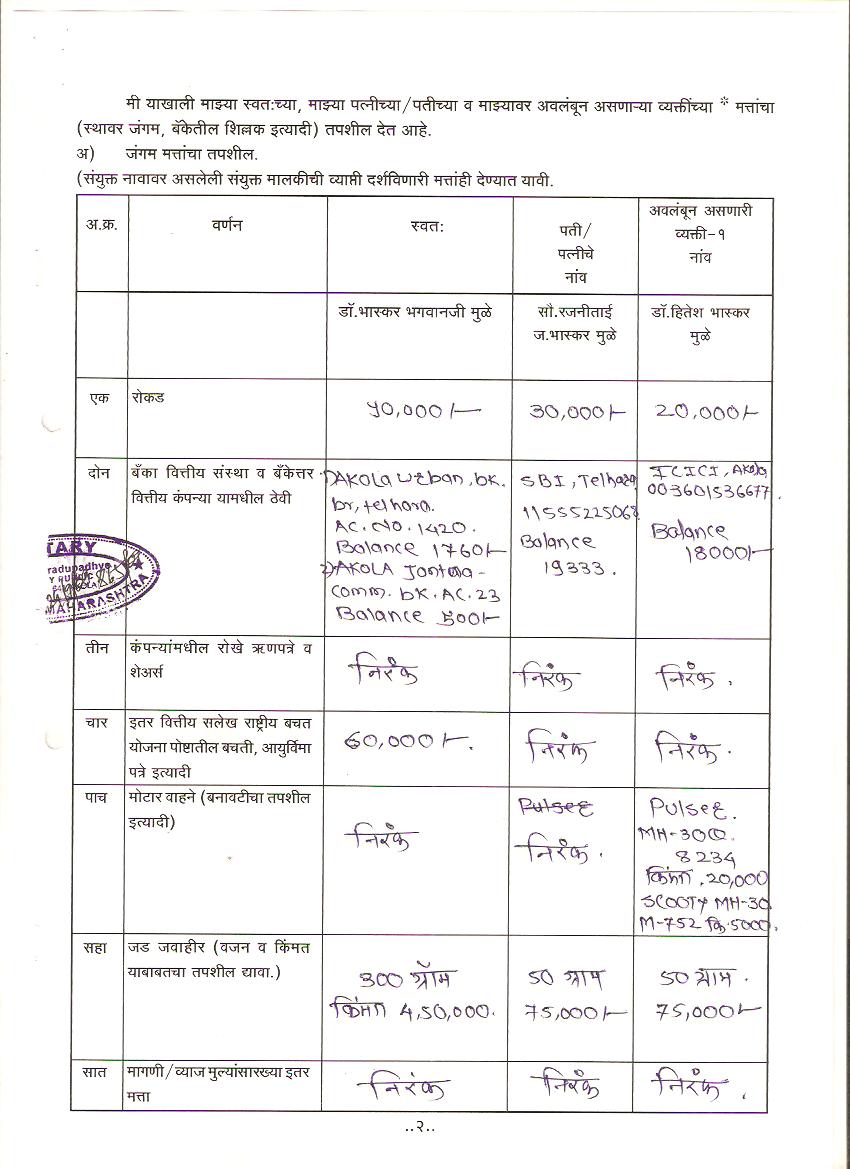 मी याखाली माझ्या स्वत:च्या, माझ्या पत्नीच्या/पतीच्या व माझ्यावर अवलंबून असणाऱ्या व्यक्तींच्या * मत्तांचा
(स्थावर जंगम, बॅंकेतील शिल्लक इत्यादी) तपशील देत आहे.
अ) जंगम मत्तांचा तपशील.
(संयुक्त नावावर असलेली संयुक्त मालकीची व्याप्ती दर्शविणारी मत्तांही देण्यात यावी.
अ.क्र. वर्णन स्वत: पती/ पत्नीचे नांव अवलंबून असणारी व्यक्ती-१ नांव
डॉ.भास्कर भगवानजी मुळे
सौ.रजनीताई
ज.भास्कर मुळे
डॉ.हितेश भास्कर
मुळे
एक रोकड ५०,000/- 30,000/- 20,000/-
दोन बॅंका वित्तीय संस्था व बॅंकेत्तर
वित्तीय कंपन्या यामधील ठेवी
1) AKOLA Urban, bk.
br, telhara.
AC. NO. 1420.
Balance 1760/-
2) AKOLA Janta-
Comm. bk. AC. 23
Balance 500/-
SBI, Telhara
Balance
19333.
ICICI, Akola
003601536677.
Balance
18000/-
TARY
MAHARASHTRA
तीन कंपन्यांमधील रोखे ऋणपत्रे व
शेअर्स
निरंक निरंक निरंक.
चार इतर वित्तीय सलेख राष्ट्रीय बचत
योजना पोष्टातील बचती, आयुर्विमा
पत्रे इत्यादी
60,000/-. निरंक निरंक.
पाच मोटार वाहने (बनावटीचा तपशील
इत्यादी)
निरंक
Pulser
निरंक.
Pulser.
MH-30Q.
8234
किंमत, 20,000
SCOOTY MH-30
M-752 कि. 5000.
सहा जड जवाहीर (वजन व किंमत
याबाबतचा तपशील द्यावा.)
300 ग्रॅम
किंमत 4,50,000.
50 ग्राम
75,000/-
50 ग्राम.
75,000/-
सात मागणी/व्याज मुल्यांसारख्या इतर
मत्ता
निरंक निरंक निरंक.
..२..